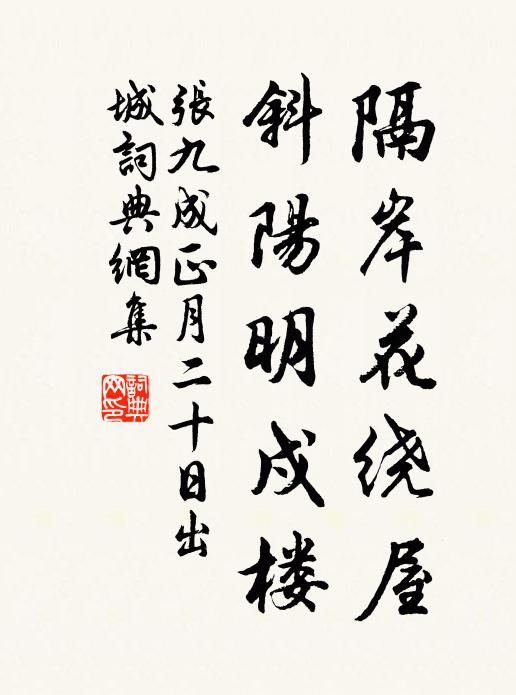 隔岸花绕屋
斜陽明戍楼
張九成正月二十日出
城詞典網集
詞典
网印